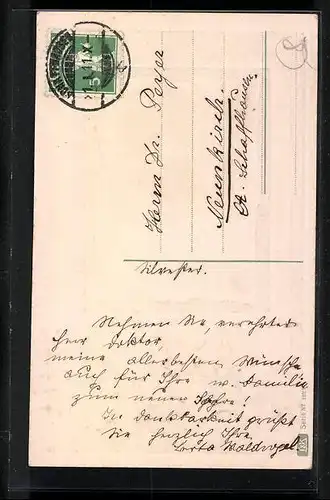 Herrn Dr. Peyer
Neunkirch.
Kt. Schaffhausen.
Silvester.
Nehmen Sie verehrter
Herr Doktor,
meine allerbesten Wünsche
auch für Ihre w. Familie
zum neuen Jahre!
In Dankbarkeit grüßt
Sie herzlich Ihre
Berta Waldvogel
5